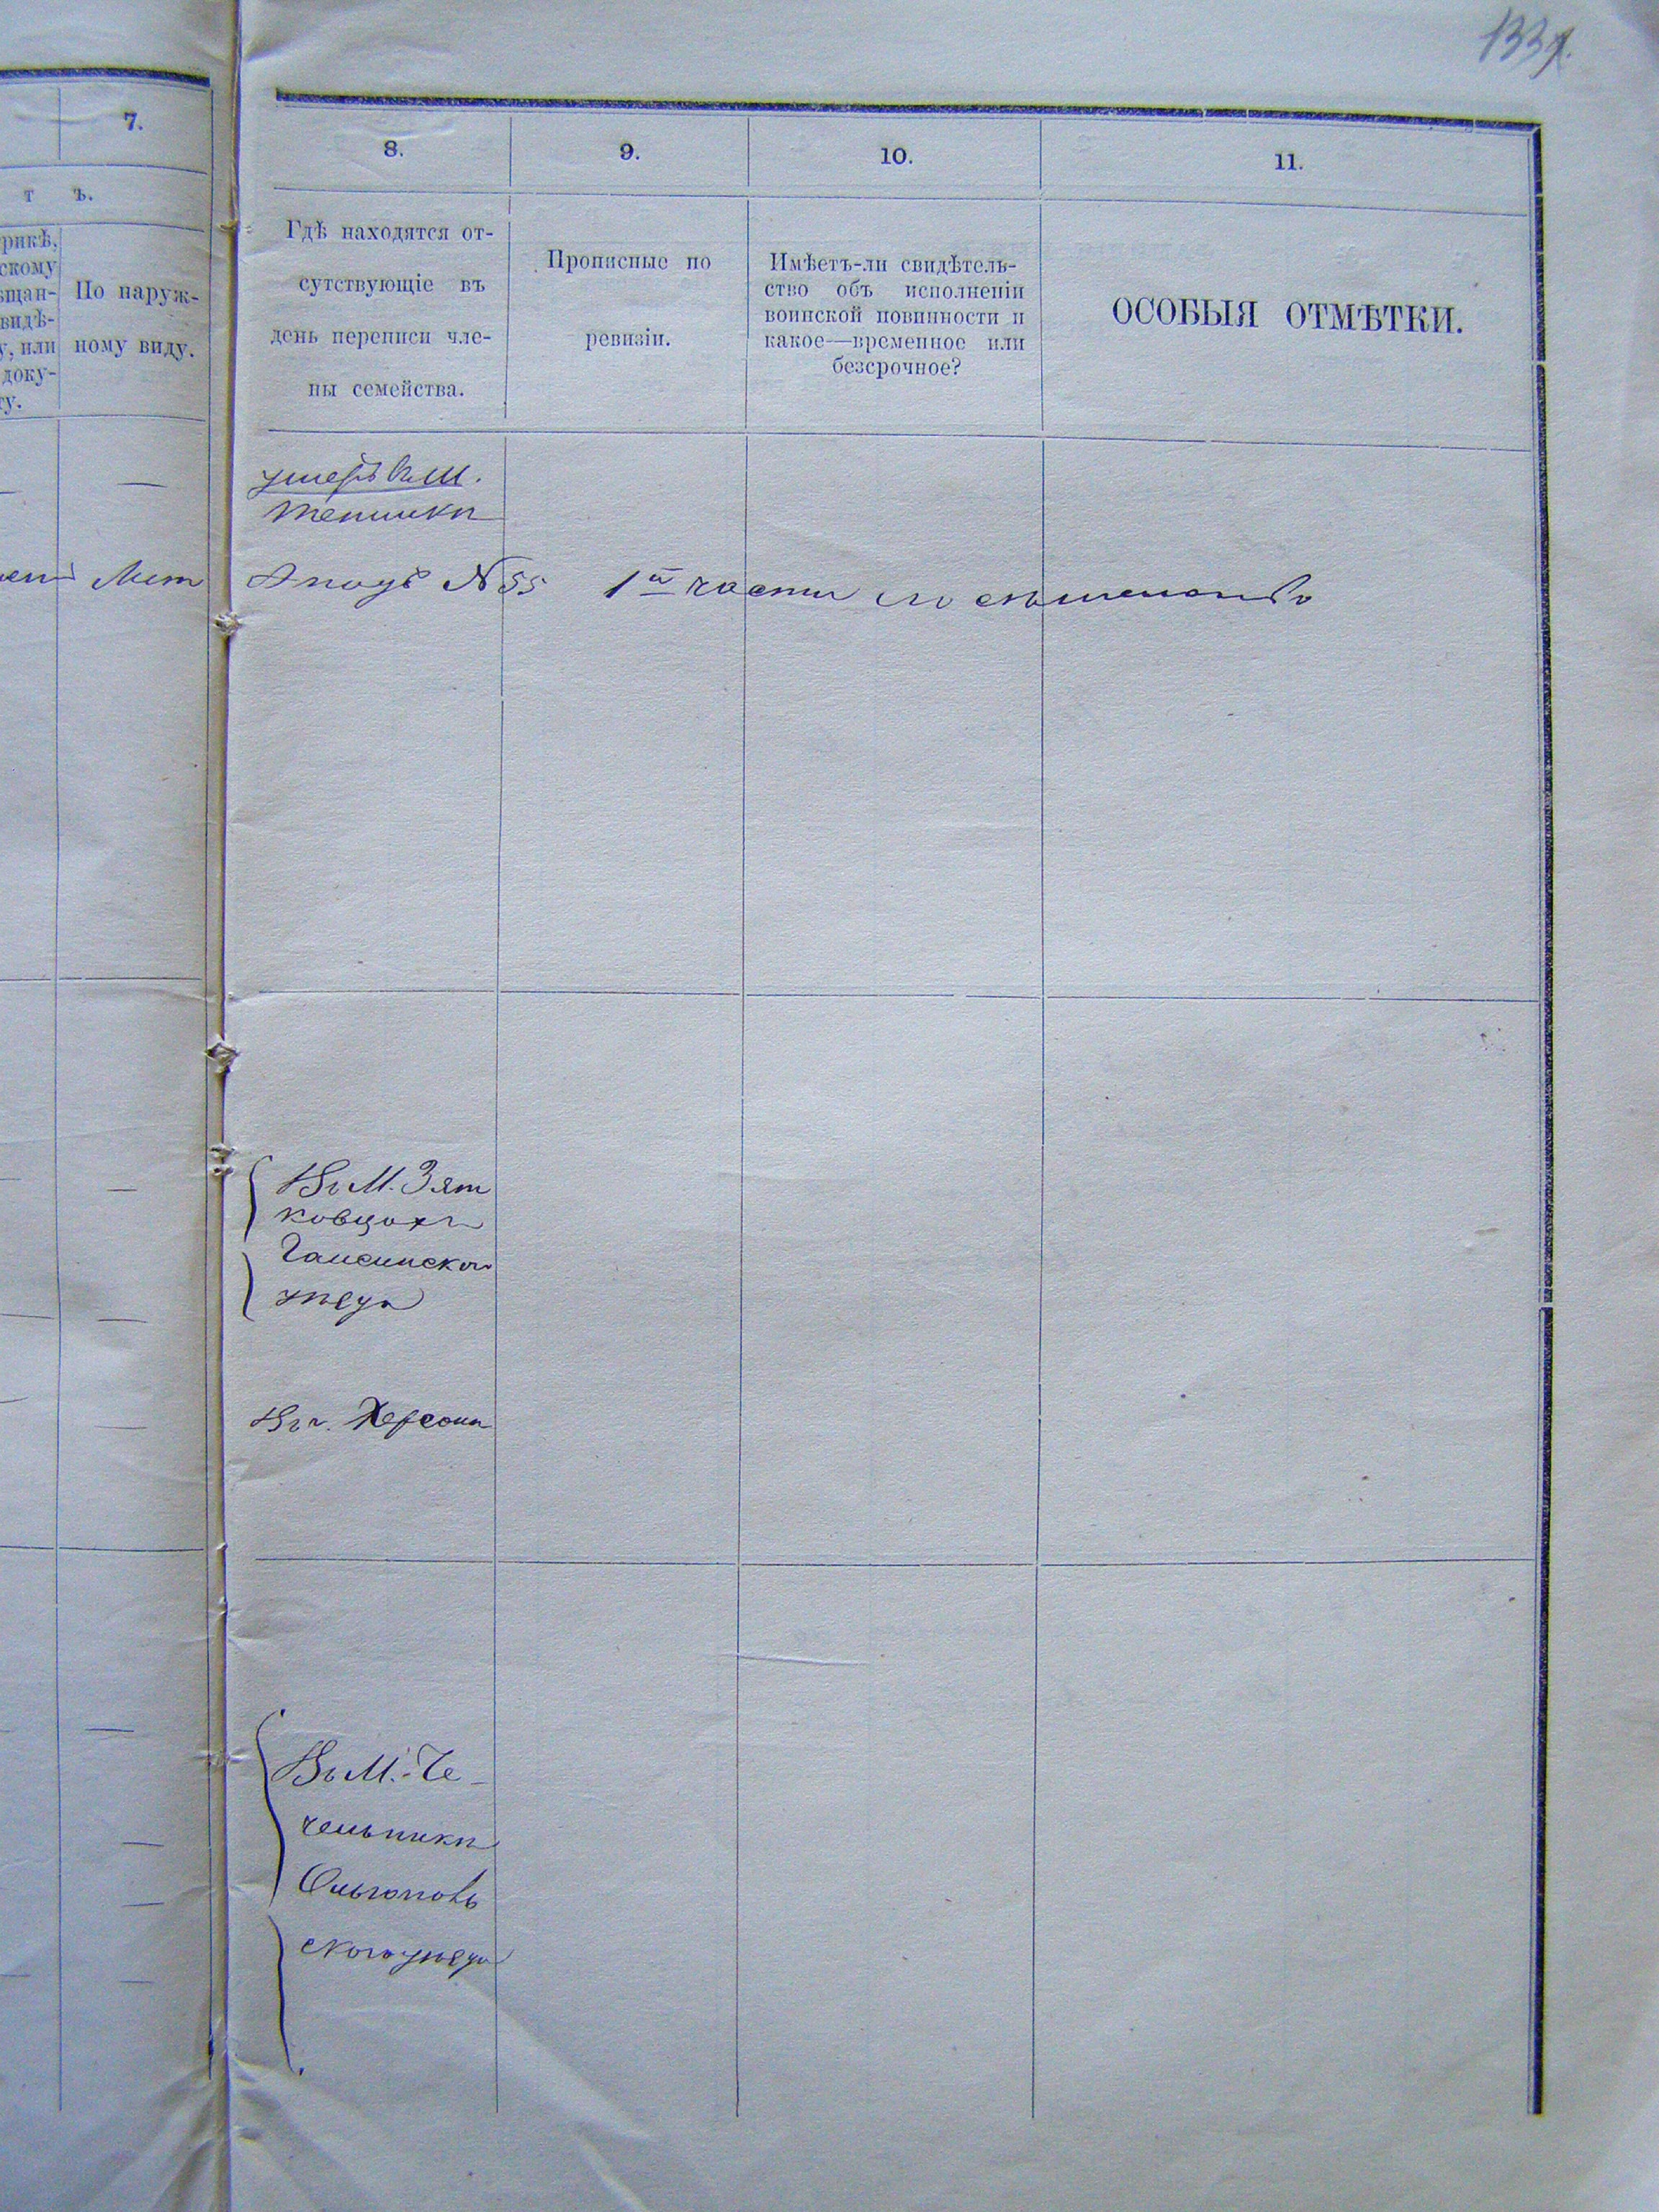 133
7.
8.
9.
10.
11.
т ъ.
рикѣ,
скому
ѣщан-
видѣ-
у, или
доку-
ту.
По наруж-
ному виду.
Гдѣ находятся от-
сутствующіе въ
день переписи чле-
ны семейства.
Прописные по
ревизіи.
Имѣетъ-ли свидѣтель-
ство объ исполненіи
воинской повинности и
какое—временное или
безсрочное?
ОСОБЫЯ ОТМѢТКИ.
Въ М.
лѣт
N 55 1й части по
Въ М. Зят
ковцахъ
Гайсинскаго
уѣзда
Въ г. Херсонѣ
Въ М. Че-
чельникѣ
Ольгоповъ
скаго уѣзда